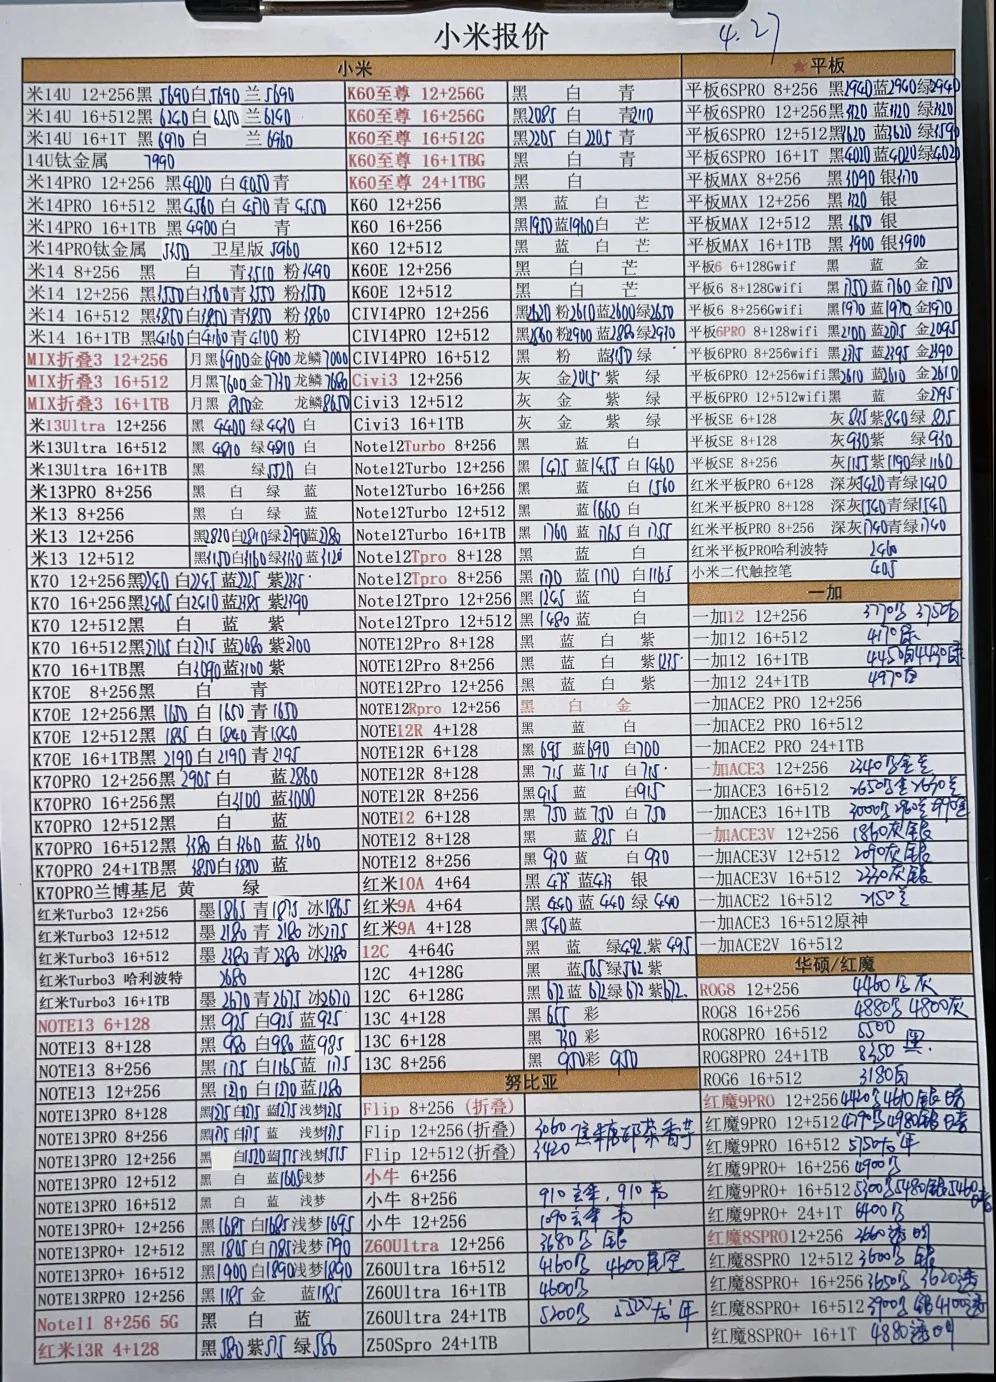 小米报价
4.27
小米
米14U 12+256黑5690白5690 兰5690
米14U 16+512黑6240白6250 兰6240
米14U 16+1T 黑6970白 兰6960
14U钛金属 7990
米14PRO 12+256 黑4020 白4050青
米14PRO 16+512 黑4560白4570青4550
米14PRO 16+1TB 黑4900白 青
米14PRO钛金属 卫星版5960
米14 8+256 黑 白 青3510 粉3490
米14 12+256 黑3550白3560青3550 粉3550
米14 16+512 黑3850白3850青3850 粉3860
米14 16+1TB 黑4160白4160青4100粉
MIX折叠3 12+256 月黑6900金6900龙鳞7000
MIX折叠3 16+512 月黑7600金7730龙鳞7680
MIX折叠3 16+1TB 月黑 8150金 龙鳞8650
米13Ultra 12+256 黑 4400 绿4470 白
米13Ultra 16+512 黑 4810 绿4810 白
米13Ultra 16+1TB 黑 绿5520白
米13PRO 8+256 黑 白 绿 蓝
米13 8+256 黑 白 绿 蓝
米13 12+256 黑2820白2810绿2790蓝2780
米13 12+512 黑3150白3160绿3130蓝3120
K70 12+256黑2240白2245蓝2225紫2235
K70 16+256黑2405白2410蓝2385紫2390
K70 12+512黑 白 蓝 紫
K70 16+512黑2705白2715蓝2680紫2700
K70 16+1TB黑 白3090蓝3100紫
K70E 8+256黑 白 青
K70E 12+256黑 1650 白 1650 青 1650
K70E 12+512黑 1835 白 1840青1840
K70E 16+1TB黑 2190 白 2190 青 2195
K70PRO 12+256黑 2905白 蓝2860
K70PRO 16+256黑 白3100 蓝3000
K70PRO 12+512黑 白 蓝
K70PRO 16+512黑 3380白3360 蓝 3360
K70PRO 24+1TB黑 3850白3850 蓝
K70PRO兰博基尼 黄 绿
红米Turbo3 12+256 墨1865 青1875 冰1865
红米Turbo3 12+512 墨 2180 青 2180 冰2175
红米Turbo3 16+512 墨 2380青2380 冰2380
红米Turbo3 哈利波特 2680
红米Turbo3 16+1TB 墨 2670青2675 冰2670
NOTE13 6+128 黑 925 白925 蓝925
NOTE13 8+128 黑 980 白980 蓝985
NOTE13 8+256 黑 1175 白1165蓝 1175
NOTE13 12+256 黑 1270 白1270蓝1280
NOTE13PRO 8+128 黑1275白1275 蓝1275 浅梦1275
NOTE13PRO 8+256 黑1375白1375 蓝 浅梦1375
NOTE13PRO 12+256 黑 白1520蓝1515浅梦1515
NOTE13PRO 12+512 黑 白 蓝1605浅梦
NOTE13PRO 16+512 黑 白 蓝 浅梦
NOTE13PRO+ 12+256 黑1685白1685浅梦1695
NOTE13PRO+ 12+512 黑1805白1785浅梦1790
NOTE13PRO+ 16+512 黑1900白1890浅梦1890
NOTE13RPRO 12+256 黑1185金 蓝1185
Note11 8+256 5G 黑 白 蓝
红米13R 4+128 黑580紫575 绿580
K60至尊 12+256G 黑 白 青
K60至尊 16+256G 黑2085 白 青2110
K60至尊 16+512G 黑2205 白 2205 青
K60至尊 16+1TBG 黑 白 青
K60至尊 24+1TBG 黑 白
K60 12+256 黑 蓝 白 芒
K60 16+256 黑1950蓝1960白 芒
K60 12+512 黑 蓝 白 芒
K60E 12+256 黑 白 芒
K60E 12+512 黑 白 芒
CIVI4PRO 12+256 黑2620粉2610蓝2600绿2650
CIVI4PRO 12+512 黑2860粉2900蓝2880绿2910
CIVI4PRO 16+512 黑 粉 蓝3150绿
Civi3 12+256 灰 金2015紫 绿
Civi3 12+512 灰 金 紫 绿
Civi3 16+1TB 灰 金 紫 绿
Note12Turbo 8+256 黑 蓝 白
Note12Turbo 12+256 黑 1475 蓝1455 白 1460
Note12Turbo 16+256 黑 蓝 白 1560
Note12Turbo 12+512 黑 蓝1660 白
Note12Turbo 16+1TB 黑 1760 蓝 1765 白 1755
Note12Tpro 8+128 黑 蓝 白
Note12Tpro 8+256 黑 1170 蓝1170 白1165
Note12Tpro 12+256 黑1245 蓝 白
Note12Tpro 12+512 黑1480 蓝 白
NOTE12Pro 8+128 黑 蓝 白 紫
NOTE12Pro 8+256 黑 蓝 白 紫1235
NOTE12Pro 12+256 黑 蓝 白 紫
NOTE12Rpro 12+256 黑 白 金
NOTE12R 4+128 黑 蓝 白
NOTE12R 6+128 黑 695 蓝690 白700
NOTE12R 8+128 黑 715 蓝715 白715
NOTE12R 8+256 黑915 蓝 白915
NOTE12 6+128 黑 750 蓝750 白 750
NOTE12 8+128 黑 蓝825 白
NOTE12 8+256 黑 930 蓝 白 930
红米10A 4+64 黑 蓝 银
红米9A 4+64 黑 440 蓝 440 绿 440
红米9A 4+128 黑540蓝
12C 4+64G 黑 蓝 绿492紫495
12C 4+128G 黑 蓝565绿562紫
12C 6+128G 黑672蓝672绿672紫672
13C 4+128 黑 655 彩
13C 6+128 黑 730 彩
13C 8+256 黑 950彩 950
努比亚
Flip 8+256 (折叠)
Flip 12+256(折叠) 3060
Flip 12+512(折叠) 3420
小牛 6+256
小牛 8+256 910 910
小牛 12+256 1090
Z60Ultra 12+256 3680 银
Z60Ultra 16+512 4160 4600星空
Z60Ultra 16+1TB 4600
Z60Ultra 24+1TB 5200 5500
Z50Spro 24+1TB
★平板
平板6SPRO 8+256 黑2940蓝2940绿2940
平板6SPRO 12+256黑3120 蓝3120 绿3120
平板6SPRO 12+512黑3620 蓝3620 绿3590
平板6SPRO 16+1T 黑4020 蓝4020绿4020
平板MAX 8+256 黑3090 银3170
平板MAX 12+256 黑3120 银
平板MAX 12+512 黑3650 银
平板MAX 16+1TB 黑3900 银3900
平板6 6+128Gwif 黑 蓝 金
平板6 8+128Gwifi 黑1750蓝1760金1750
平板6 8+256Gwifi 黑1970 蓝1970金1970
平板6PRO 8+128wifi 黑2100蓝2075 金2095
平板6PRO 8+256wifi 黑2375蓝2395 金2390
平板6PRO 12+256wifi黑2610蓝2610 金2610
平板6PRO 12+512wifi黑 蓝 金2795
平板SE 6+128 灰835紫840绿 835
平板SE 8+128 灰930紫 绿930
平板SE 8+256 灰1155紫1190绿1160
红米平板PRO 6+128 深灰1420青绿1420
红米平板PRO 8+128 深灰1540青绿1540
红米平板PRO 8+256 深灰1740青绿1740
红米平板PRO哈利波特 2460
小米二代触控笔 405
一加
一加12 12+256 3770 3750白
一加12 16+512 4170
一加12 16+1TB 4450白
一加12 24+1TB 4970
一加ACE2 PRO 12+256
一加ACE2 PRO 16+512
一加ACE2 PRO 24+1TB
一加ACE3 12+256 2340
一加ACE3 16+512 2650 2630
一加ACE3 16+1TB 3000
一加ACE3V 12+256 1860灰银
一加ACE3V 12+512 2090灰银
一加ACE3V 16+512 2330灰银
一加ACE2 16+512 2150
一加ACE3 16+512原神
一加ACE2V 16+512
华硕/红魔
ROG8 12+256 4460 灰
ROG8 16+256 4880 4800灰
ROG8PRO 16+512 5500
ROG8PRO 24+1TB 8350 黑
ROG6 16+512 3180白
红魔9PRO 12+256 4420 4610银
红魔9PRO 12+512 4790 4980银
红魔9PRO 16+512 5150
红魔9PRO+ 16+256 4900
红魔9PRO+ 16+512 5300 5480银5460
红魔9PRO+ 24+1T 6400
红魔8SPRO12+256 3660透明
红魔8SPRO 12+512 3600 银
红魔8SPRO+ 16+256 3650 3620透
红魔8SPRO+ 16+512 3900 银4100透
红魔8SPRO+ 16+1T 4880透明